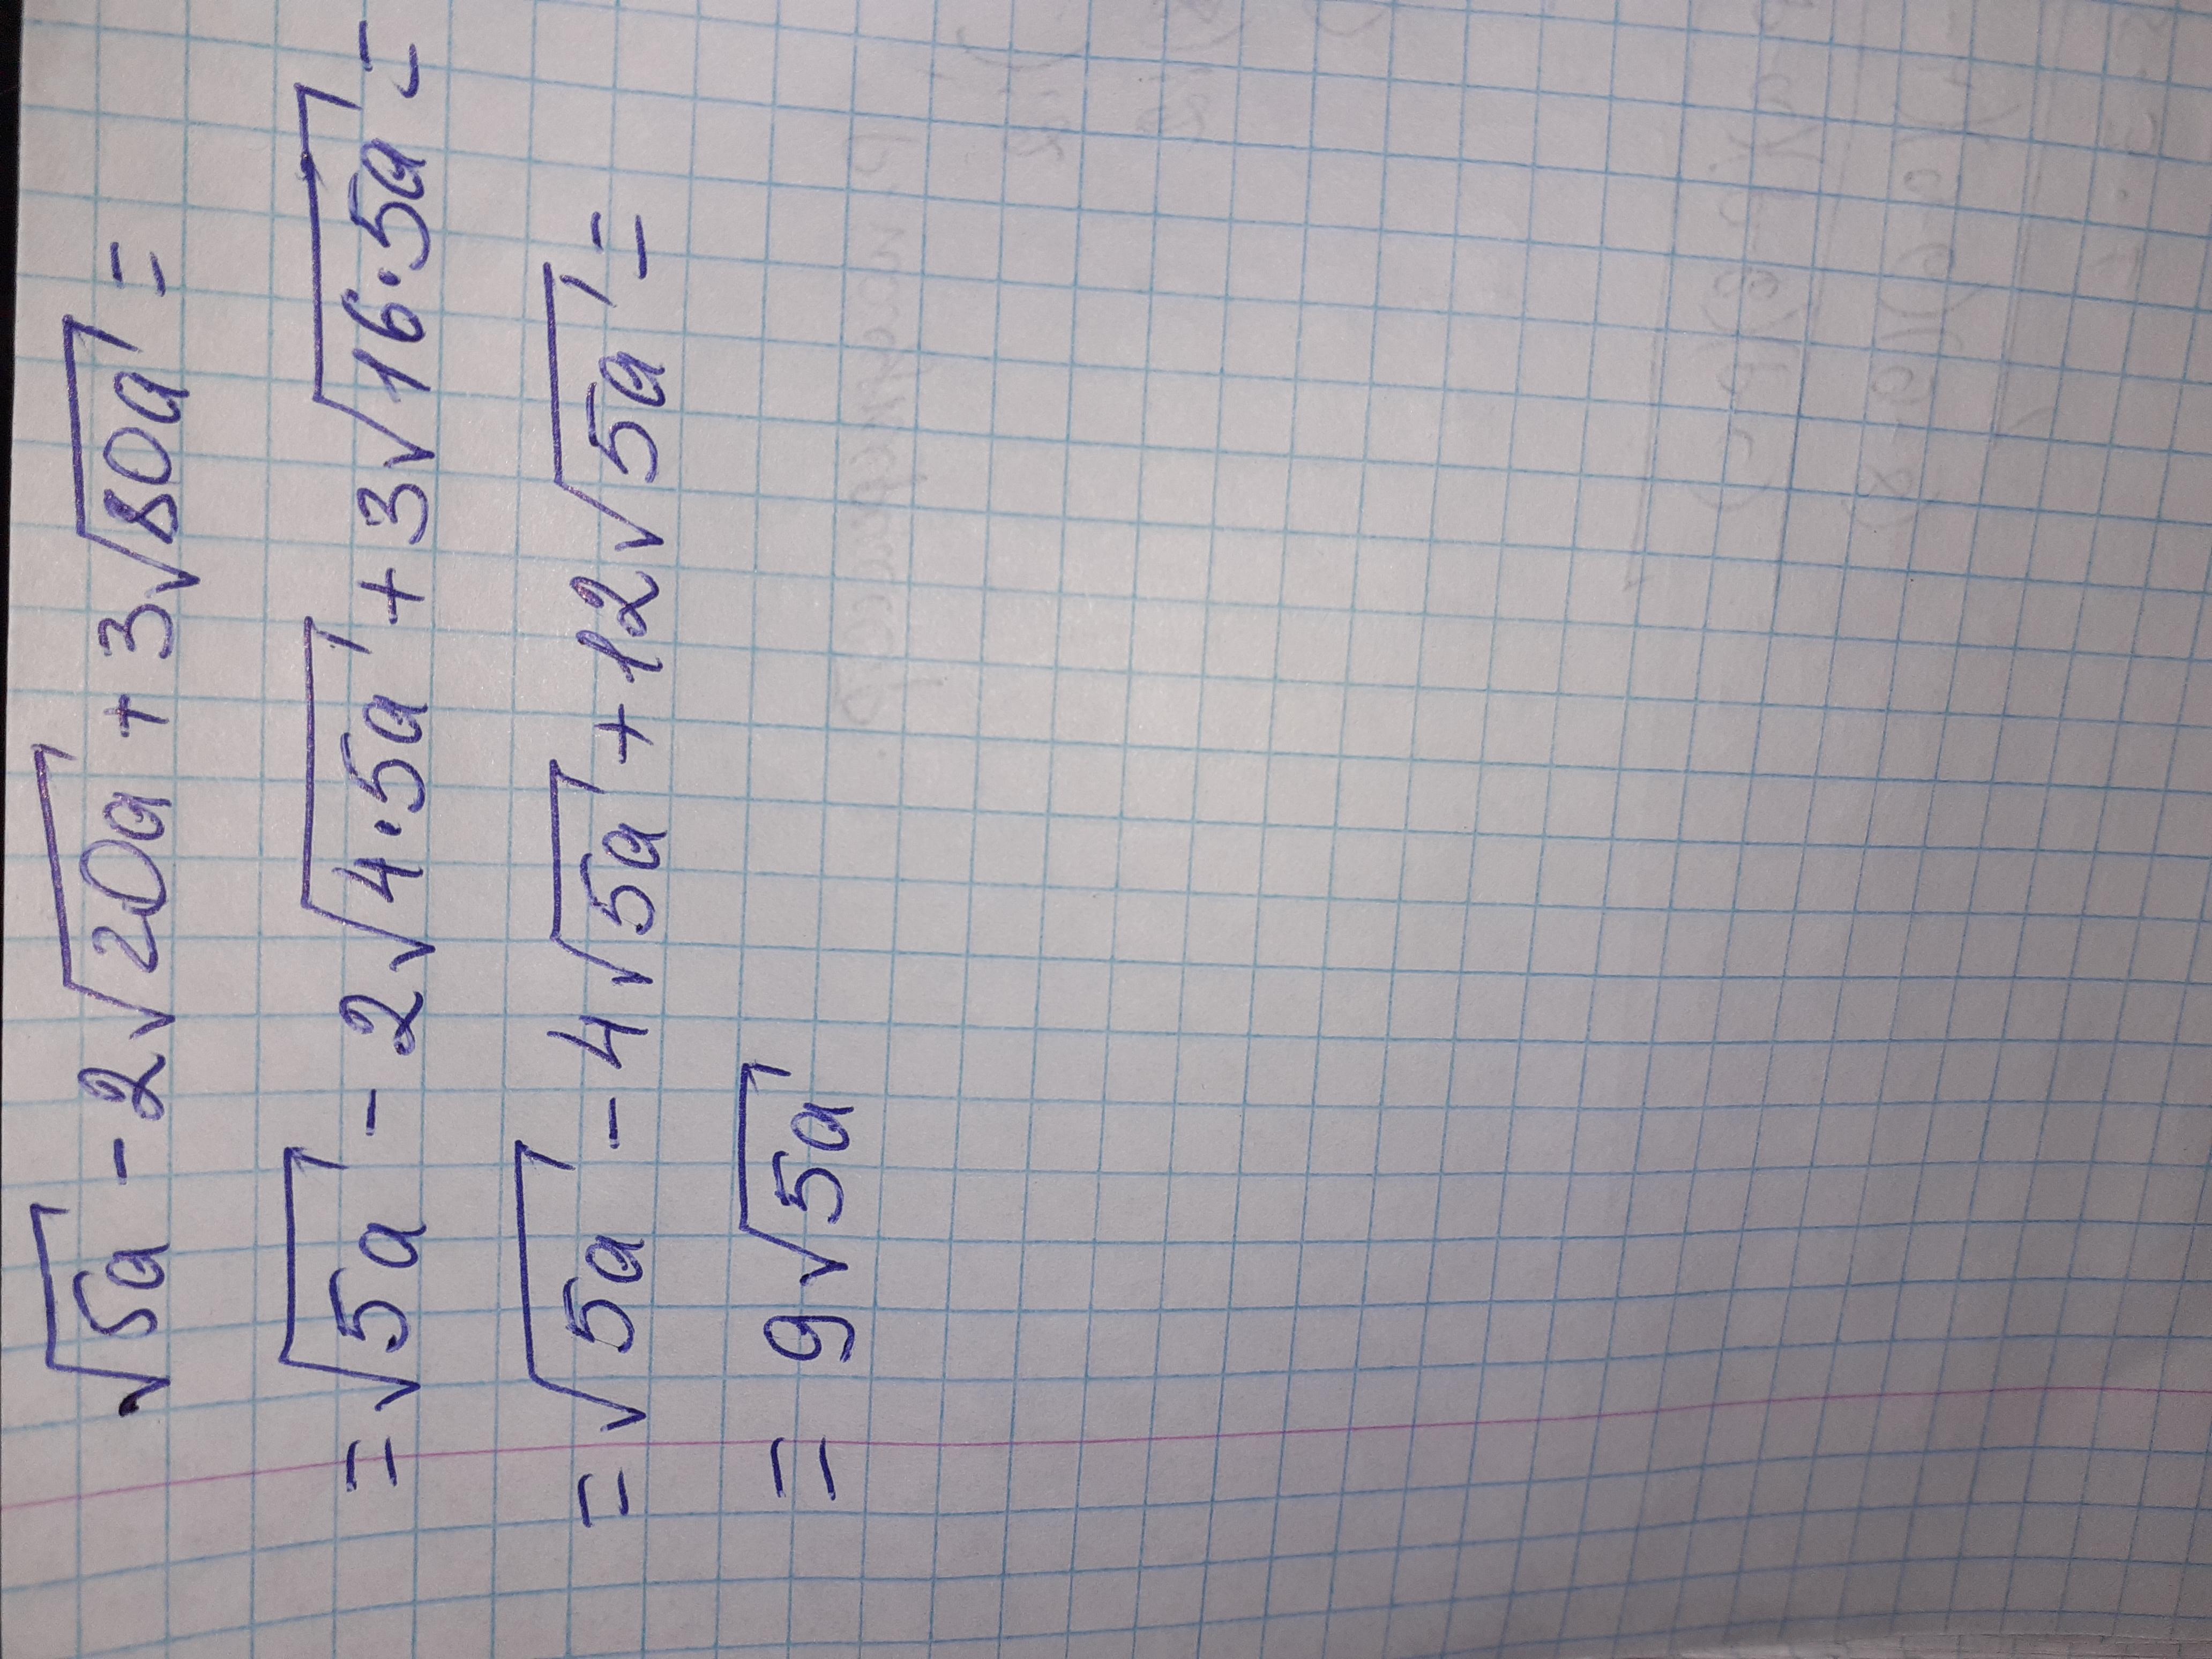 √5a - 2√20a + 3√80a =
= √5a - 2√4·5a + 3√16·5a =
= √5a - 4√5a + 12√5a =
= 9√5a